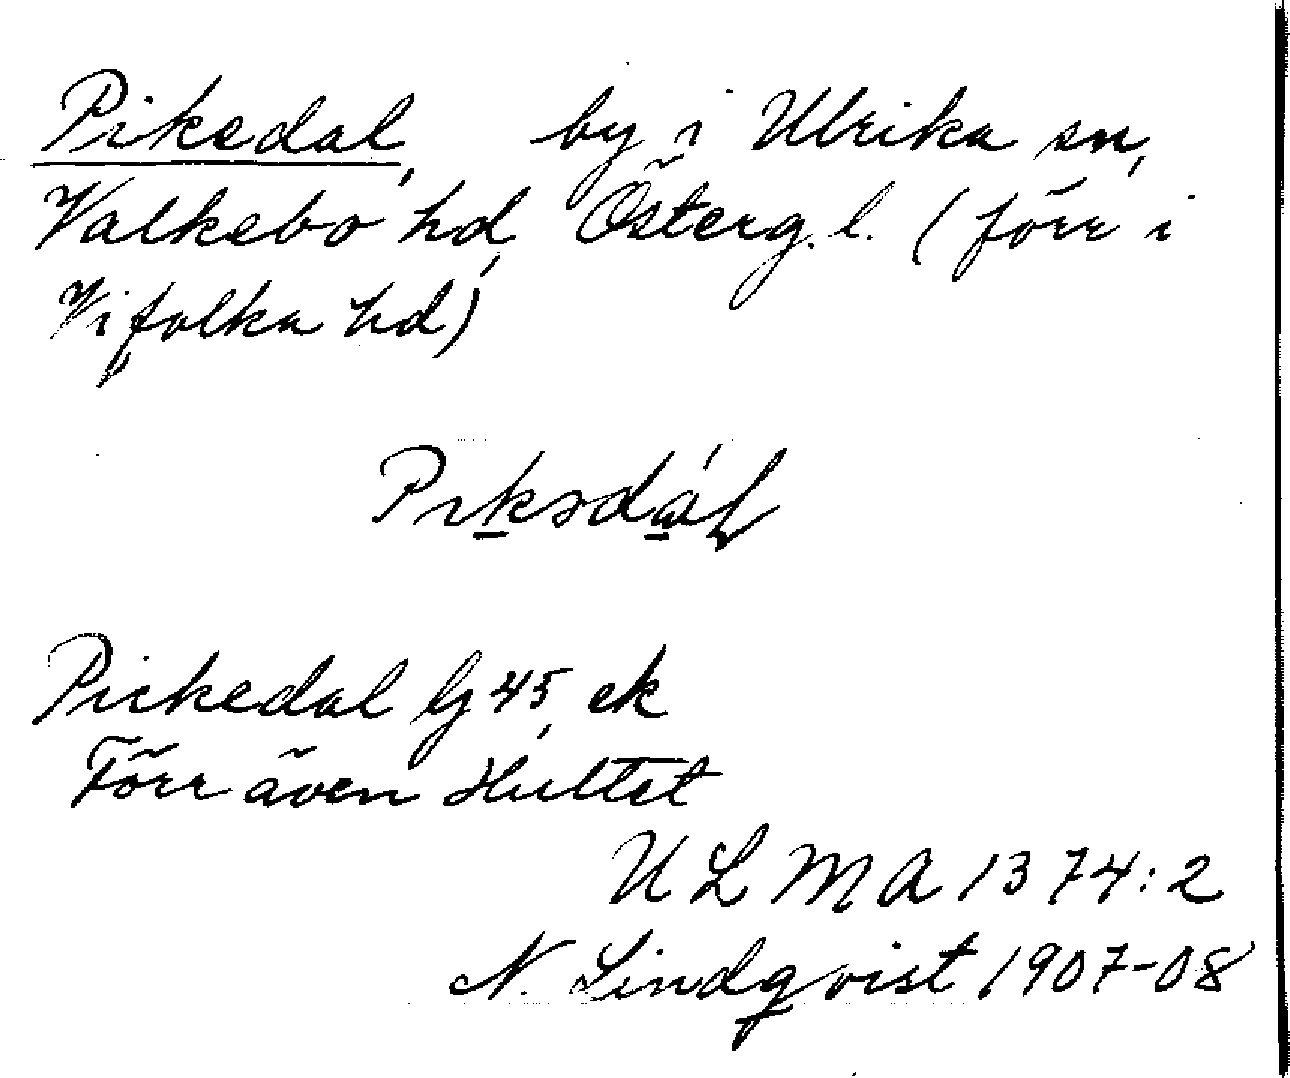 Pikedal, by i Ulrika sn,
Valkebo hd, Österg. l. (förr i
Vifolka hd)
Pickedal Gj 45, ek
Förr även Hultet
ULMA 1374:2
N. Lindqvist 1907-08